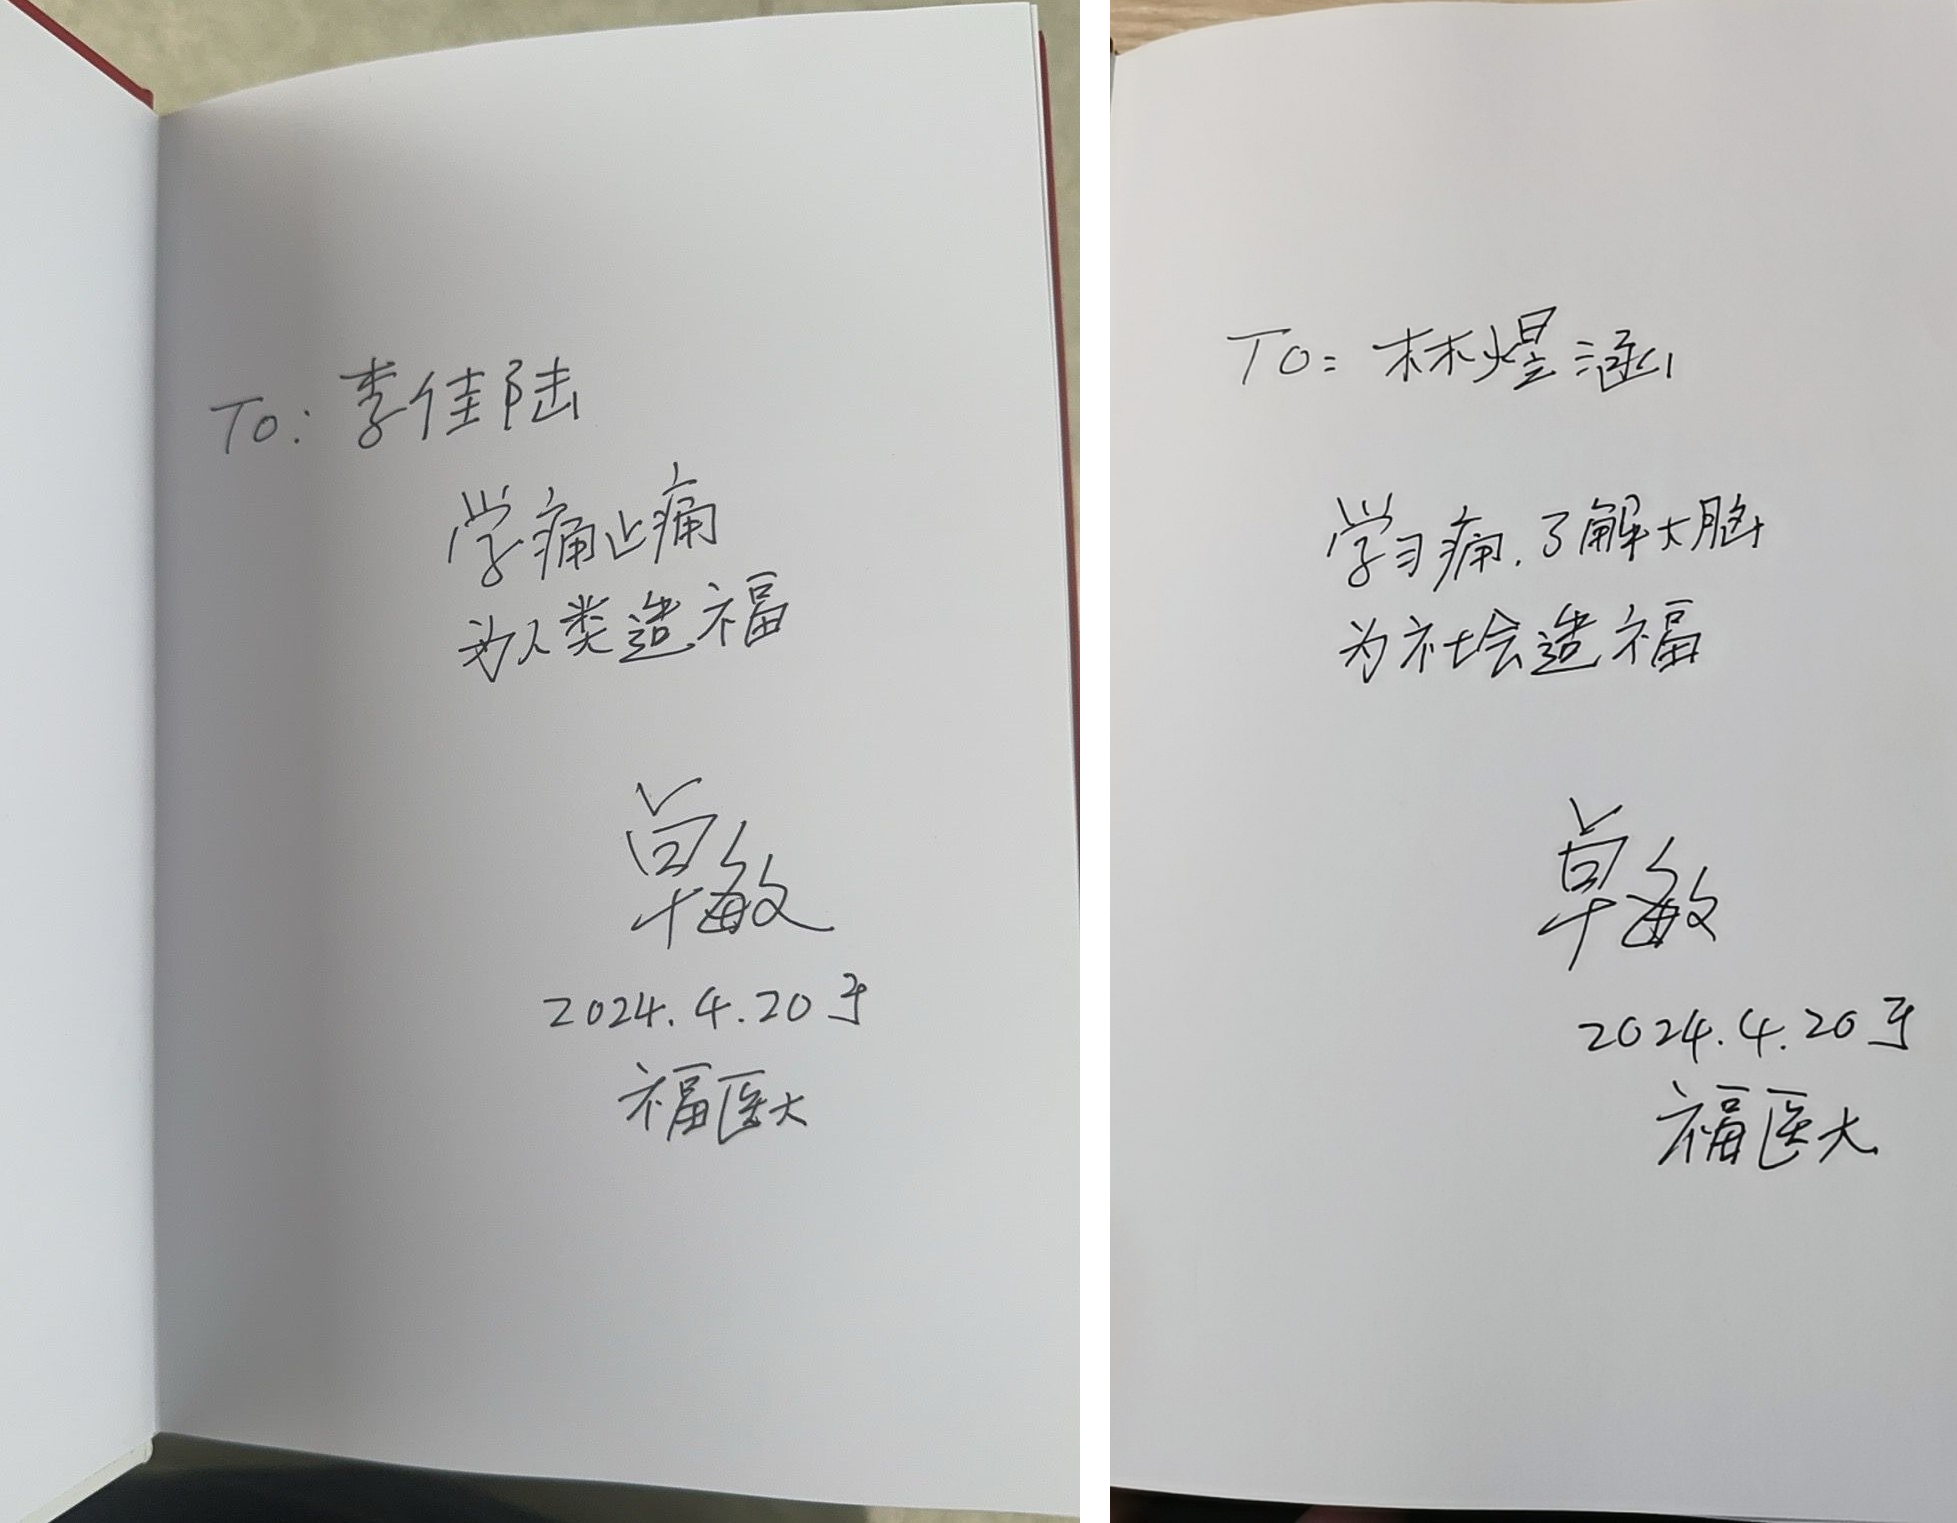 To: 李佳陆
学痛止痛
为人类造福
卓敏
2024.4.20于
福医大
To: 林煜涵
学习痛.了解大脑
为社会造福
卓敏
2024.4.20于
福医大